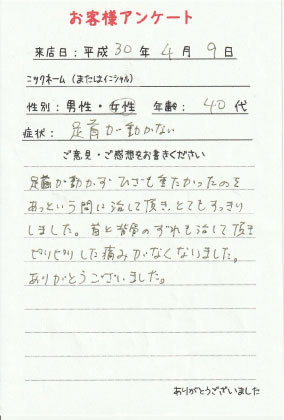 お客様アンケート
来店日：平成 30 年 4 月 9 日
ニックネーム（またはイニシャル）
性別：男性・女性 年齢： 40 代
症状： 足首が動かない
ご意見・ご感想をお書きください
足首が動かずひざも重たかったのを
あっという間に治して頂き、とてもすっきり
しました。首と背骨のずれも治して頂き
ピリピリした痛みがなくなりました。
ありがとうございました。
ありがとうございました